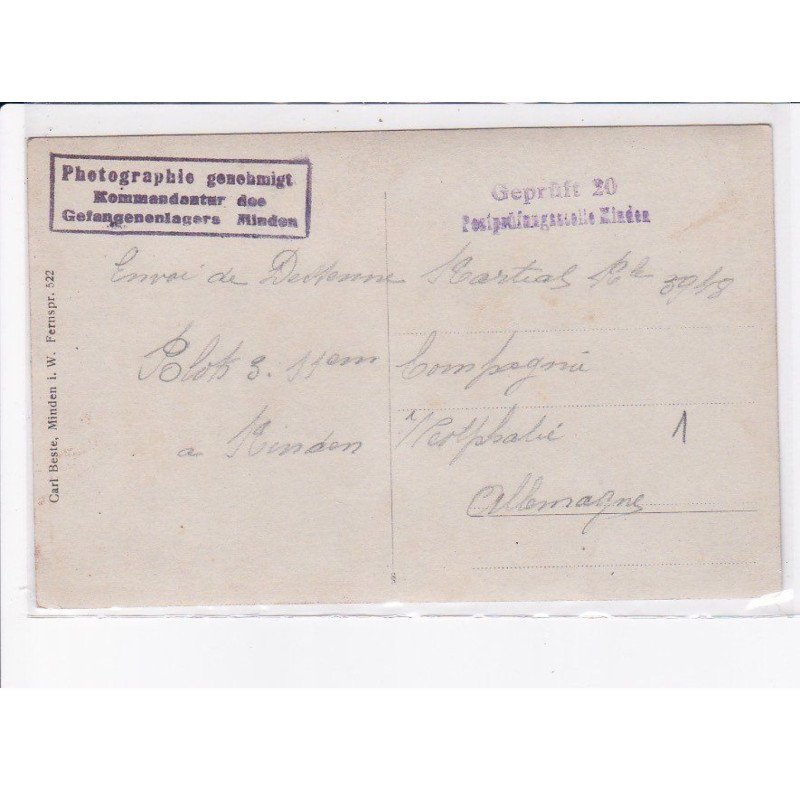 Photographie genehmigt
Kommandantur des
Gefangenenlagers Minden
Geprüft 20
Postprüfungsstelle Minden
Envoi de Martial
Blok 3. 11em Compagnie
a Minden Westphalie
Allemagne
1
Carl Beste, Minden i. W. Fernspr. 522